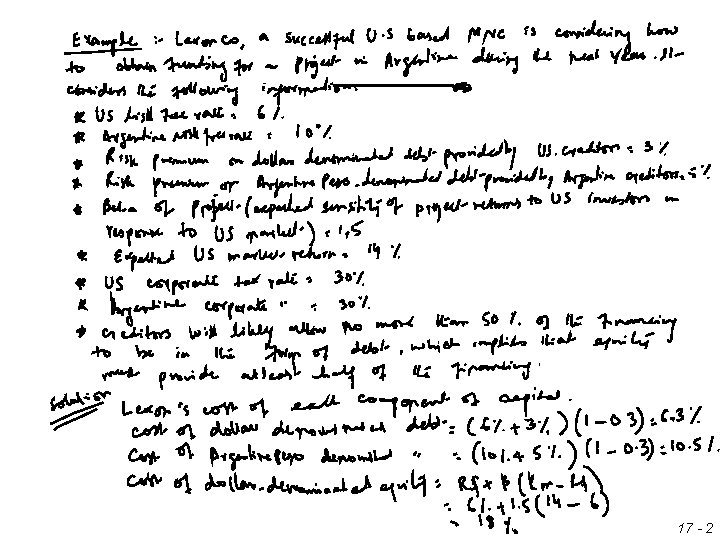 Example :- Lexon Co, a successful U.S based MNC is considering how
to obtain funding for a project in Argentina during the next year. It
considers the following information
* US risk free rate = 6%
* Argentine risk free rate = 10%
* Risk premium on dollar denominated debt provided by US. creditors = 3%
* Risk premium on Argentine Peso-denominated debt-provided by Argentine creditors = 5%
* Beta of Project (expected sensitivity of project returns to US investors in
response to US market) = 1.5
* Expected US market return = 14%
* US corporate tax rate = 30%
* Argentine corporate " = 30%
* creditors will likely allow no more than 50% of the financing
to be in the form of debt, which implies that equity
must provide atleast half of the financing.
Solution Lexon's cost of each component of capital.
Cost of dollar denominated debt = (6% + 3%) (1 - 0.3) = 6.3%
Cost of Argentine peso denominated " = (10% + 5%) (1 - 0.3) = 10.5%
Cost of dollar-denominated equity = Rf + B (Km - Rf)
= 6% + 1.5 (14 - 6)
= 18%
17 - 2